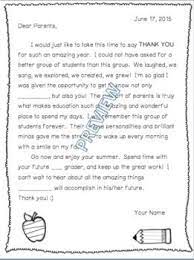 June 17, 2015
Dear Parents,
I would just like to take this time to say THANK YOU
for such an amazing year. I could not have asked for a
better group of students than this group. We laughed, we
sang, we explored, we created, we grew! I'm so glad I
was given the opportunity to get to know
________, but all of my students as well. The
relationship between students and parents is truly
what makes education such an amazing and wonderful
place to spend my days. I will remember this group of
students forever. Their unique personalities and brilliant
minds have given me the strength to continue in this
profession.
Go now and enjoy your summer. Spend time with
your future ___ grader, and keep up the great work! I
can't wait to hear about all the amazing things
________ will accomplish in his/her future.
Thank you! :)
Your Name
PREVIEW